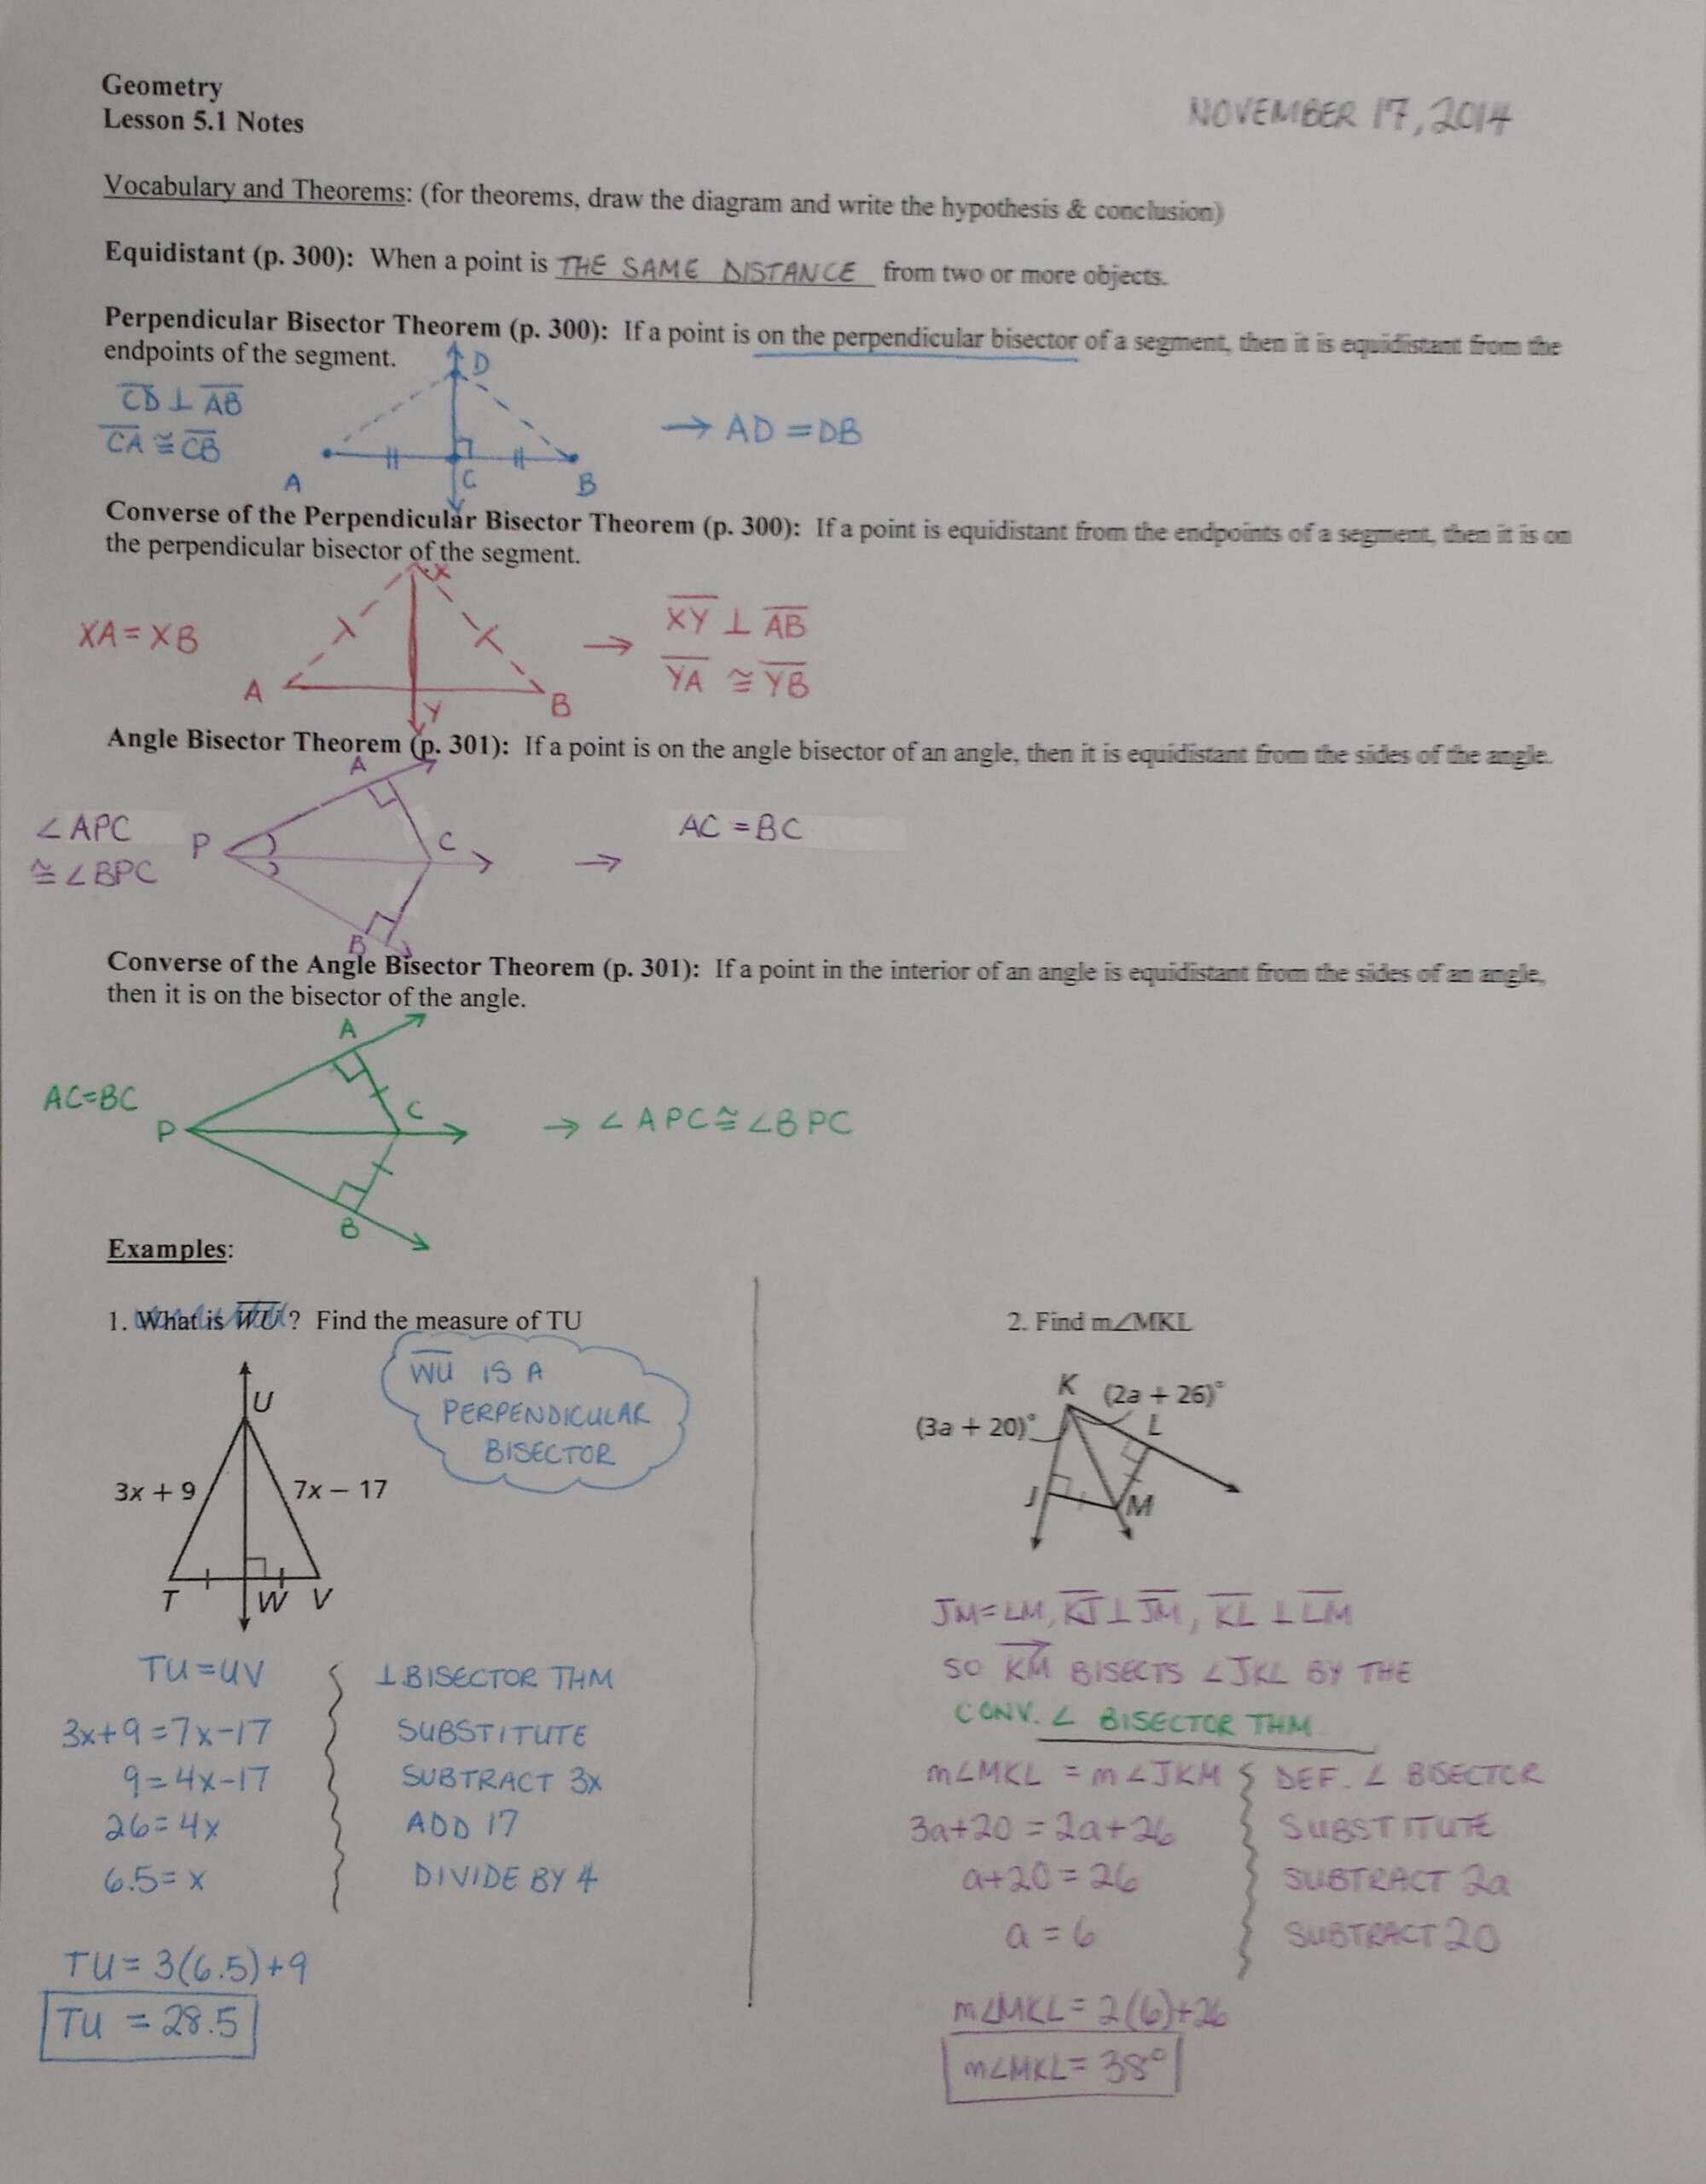 Geometry
Lesson 5.1 Notes
NOVEMBER 17, 2014
Vocabulary and Theorems: (for theorems, draw the diagram and write the hypothesis & conclusion)
Equidistant (p. 300): When a point is THE SAME DISTANCE from two or more objects.
Perpendicular Bisector Theorem (p. 300): If a point is on the perpendicular bisector of a segment, then it is equidistant from the
endpoints of the segment.
D
C̅D̅ ⊥ A̅B̅
C̅A̅ ≅ C̅B̅
→ AD = DB
A
C
B
Converse of the Perpendicular Bisector Theorem (p. 300): If a point is equidistant from the endpoints of a segment, then it is on
the perpendicular bisector of the segment.
X
XA = XB
→
X̅Y̅ ⊥ A̅B̅
Y̅A̅ ≅ Y̅B̅
A
Y
B
Angle Bisector Theorem (p. 301): If a point is on the angle bisector of an angle, then it is equidistant from the sides of the angle.
A
∠APC
≅ ∠BPC
P
C
→
AC = BC
B
Converse of the Angle Bisector Theorem (p. 301): If a point in the interior of an angle is equidistant from the sides of an angle,
then it is on the bisector of the angle.
A
AC=BC
P
C
→ ∠APC ≅ ∠BPC
B
Examples:
1. What is W̅U̅? Find the measure of TU
W̅U̅ IS A
PERPENDICULAR
BISECTOR
U
3x + 9
7x – 17
T
W
V
TU = UV
⊥ BISECTOR THM
3x+9 = 7x-17
SUBSTITUTE
9 = 4x-17
SUBTRACT 3x
26 = 4x
ADD 17
6.5 = x
DIVIDE BY 4
TU = 3(6.5)+9
TU = 28.5
2. Find m∠MKL
K
(2a + 26)°
(3a + 20)°
L
J
M
JM = LM, K̅J̅ ⊥ J̅M̅, K̅L̅ ⊥ L̅M̅
SO K⃗M⃗ BISECTS ∠JKL BY THE
CONV. ∠ BISECTOR THM.
m∠MKL = m∠JKM
DEF. ∠ BISECTOR
3a+20 = 2a+26
SUBSTITUTE
a+20 = 26
SUBTRACT 2a
a = 6
SUBTRACT 20
m∠MKL = 2(6)+26
m∠MKL = 38°